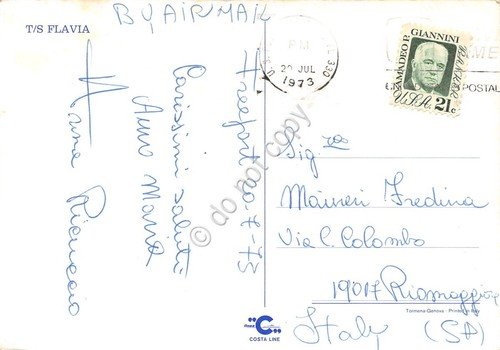 T/S FLAVIA
BY AIR MAIL
Freeport 20-7-73
Carissimi saluti
Anna Maria
Anna
PM
20 JUL
1973
330
AMADEO P. GIANNINI
U.S.A. 21c
POSTAL
Sig.
Maineri
Via C. Colombo
19017 Riomaggiore
Italy (SP)
do not copy
Tormena-Genova - Printed in Italy
C
COSTA LINE